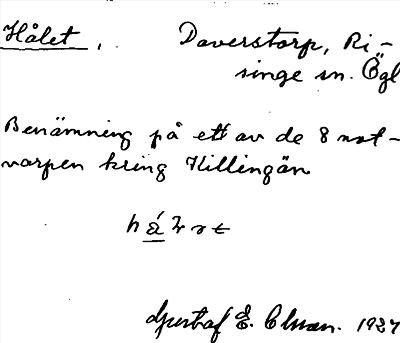 Hålet, Daverstorp, Ri-
singe sn. Ögl
Benämning på ett av de 8 not-
varpen kring Killingön
Gustaf E. 1927